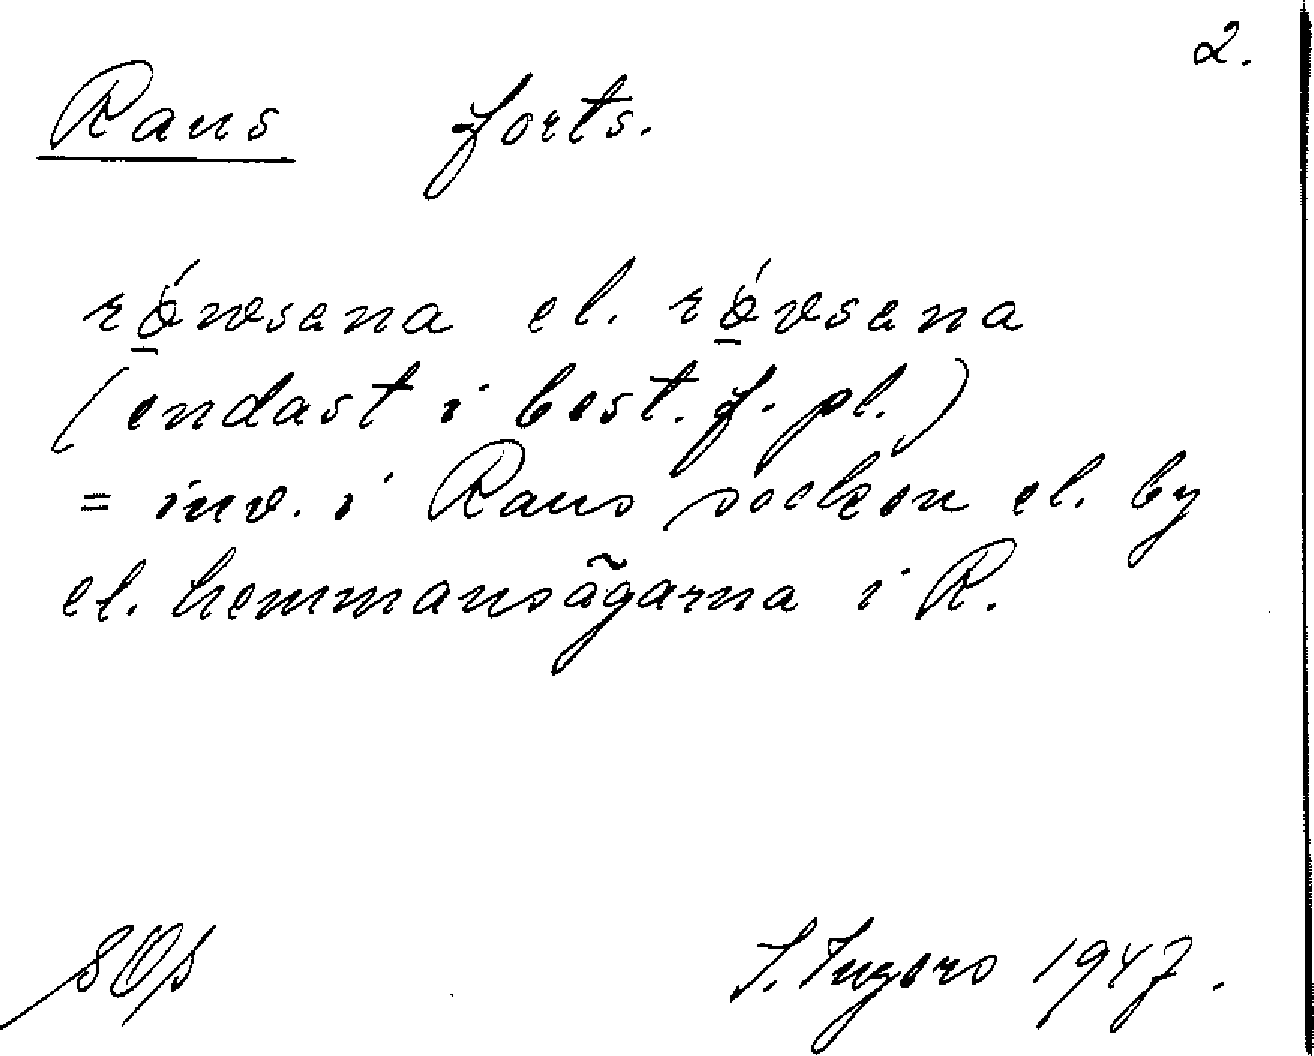 2.
Raus forts.
rówsana el. róvsana
(endast i best. f. pl.)
= inv. i Raus socken el. by
el. hemmansägarna i R.
I. Ingers 1947.